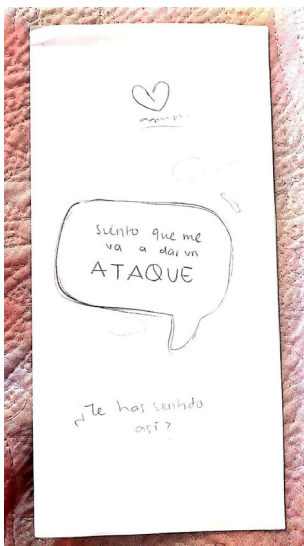 siento que me
va a dar un
ATAQUE
¿Te has sentido
así?